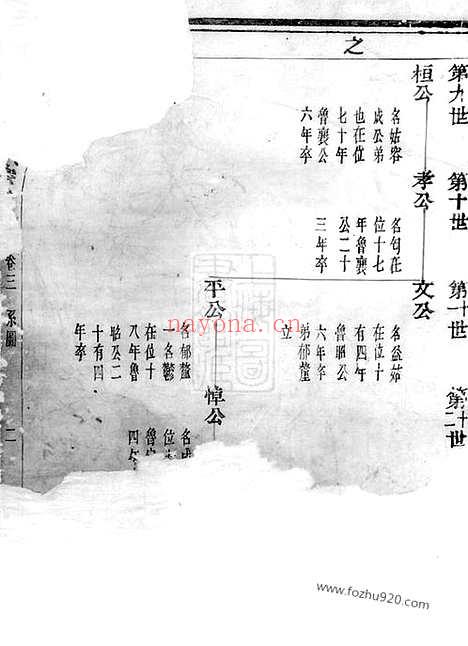 之
第九世
第十世
第十一世
第十二世
桓公
名姑容
成公弟
也在位
七十年
魯襄公
六年卒
孝公
名匄在
位十七
年魯襄
公二十
三年卒
文公
名益姑
在位十
有四年
魯昭公
六年卒
弟郁釐
立
平公
名郁釐
一名鬱
在位十
八年魯
昭公二
十有四
年卒
悼公
名成
位
魯定
四年
卷三
系圖
二
nayona.cn
www.fozhu920.com